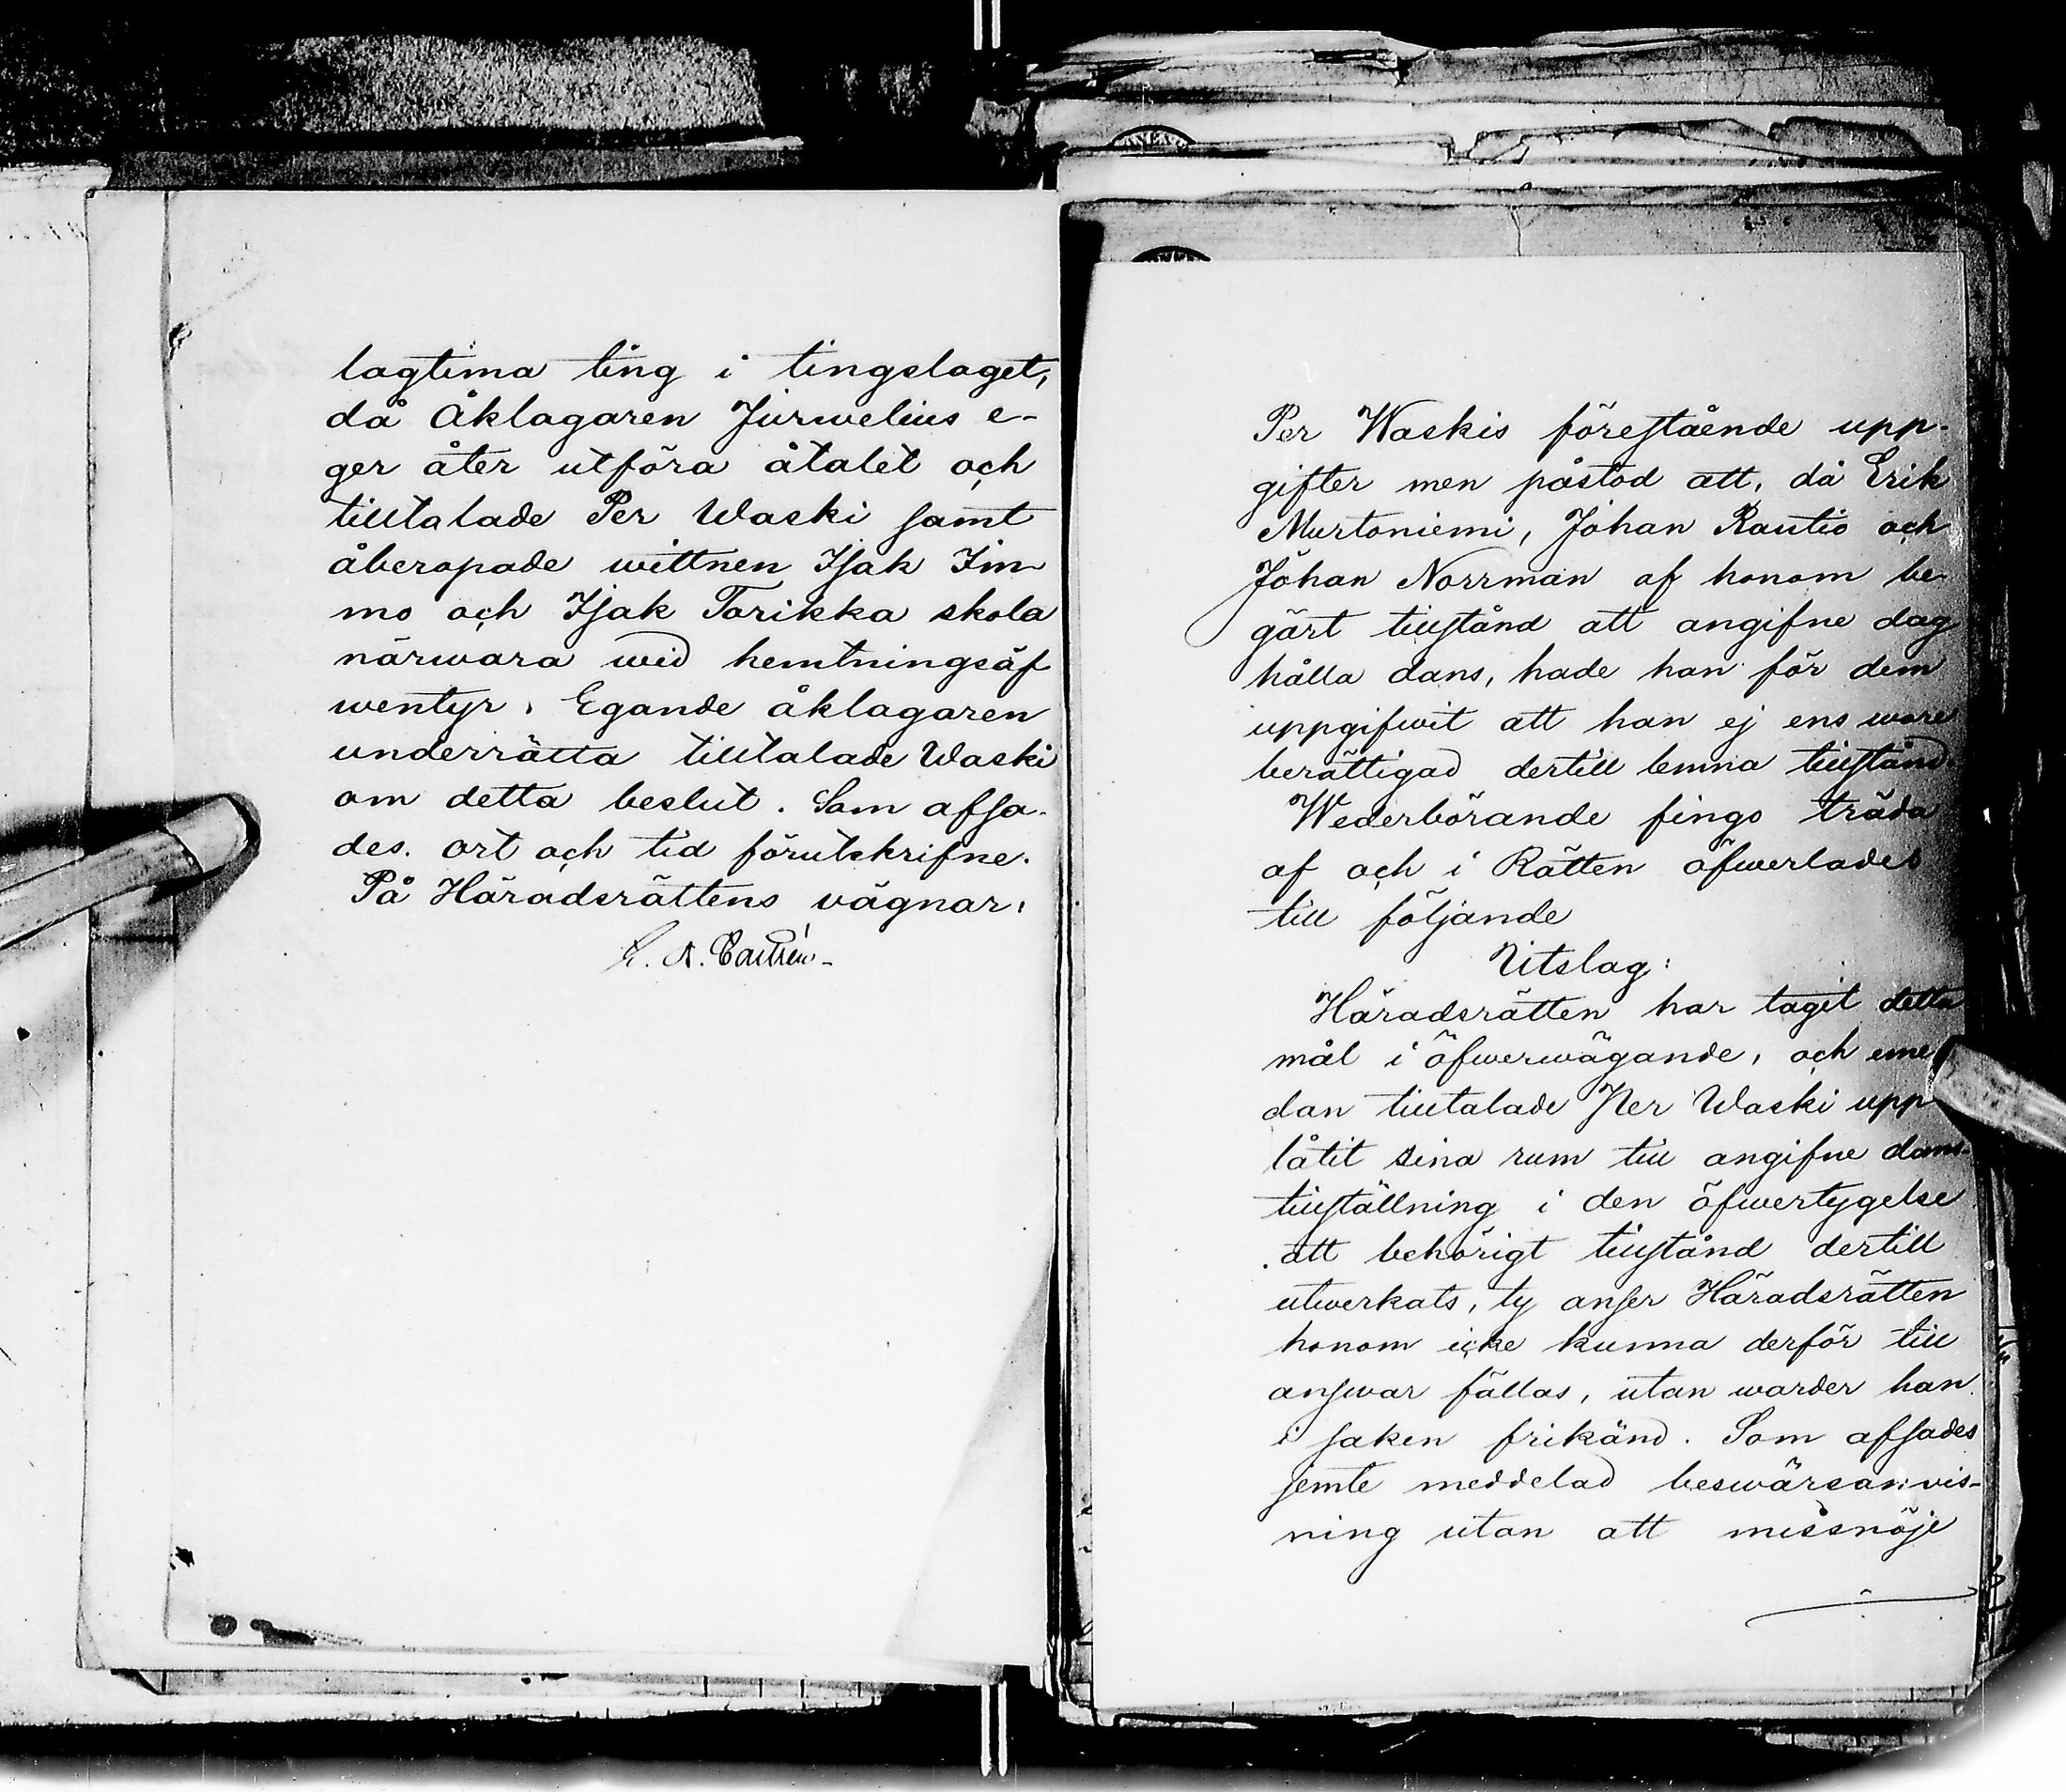 lagtima ting i tingslaget,
då Åklagaren Jurvelius e-
ger åter utföra åtalet och
tilltalade Per Waski samt
åberopade wittnen Isak Im-
mo och Isak Torikka skola
närwara wid hemtningsäf
wentyr. Egande åklagaren
underrätta tilltalade Waski
om detta beslut. Som afsa-
des. ort och tid förutskrifne.
På Häradsrättens vägnar.
Per Waskis förestående upp-
gifter men påstod att, då Erik
Murtoniemi, Johan Rautio och
Johan Norrman af honom be-
gärt tillstånd att angifne dag
hålla dans, hade han för dem
uppgifwit att han ej ens wore
berättigad dertill lemna tillstånd.
Wederbörande fingo träda
af och i Rätten öfwerlades
till följande
Utslag:
Häradsrätten har tagit detta
mål i öfwerwägande, och eme
dan tilltalade Per Waski upp
låtit sina rum till angifne dans-
tillställning i den öfwertygelse
att behörigt tillstånd dertill
utwerkats, ty anser Häradsrätten
honom icke kunna derför till
answar fällas, utan warder han
i saken frikänd. Som afsades
jemte meddelad beswärsanvis-
ning utan att missnöje